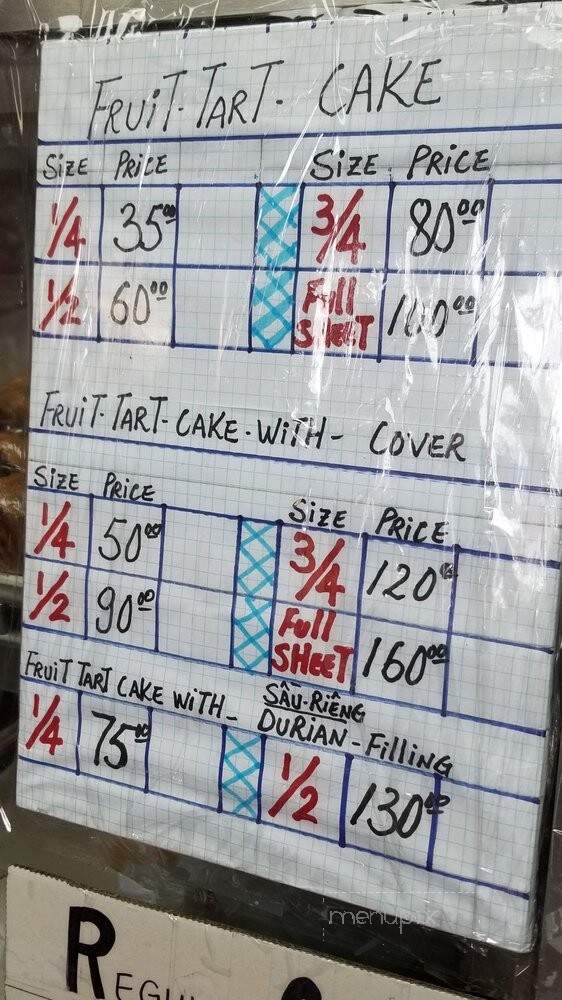 FRUiT-TART- CAKE
SiZE PRiCE SiZE PRiCE
1/4 35⁰⁰ 3/4 80⁰⁰
1/2 60⁰⁰ Full SHEET 100⁰⁰
FRUiT-TART-CAKE-WiTH- COVER
SiZE PRiCE SiZE PRiCE
1/4 50⁰⁰ 3/4 120⁰⁰
1/2 90⁰⁰ Full SHEET 160⁰⁰
FRUiT TART CAKE WiTH- SẦU-RiÊNG
DURiAN-Filling
1/4 75⁰⁰ 1/2 130⁰⁰
menupix